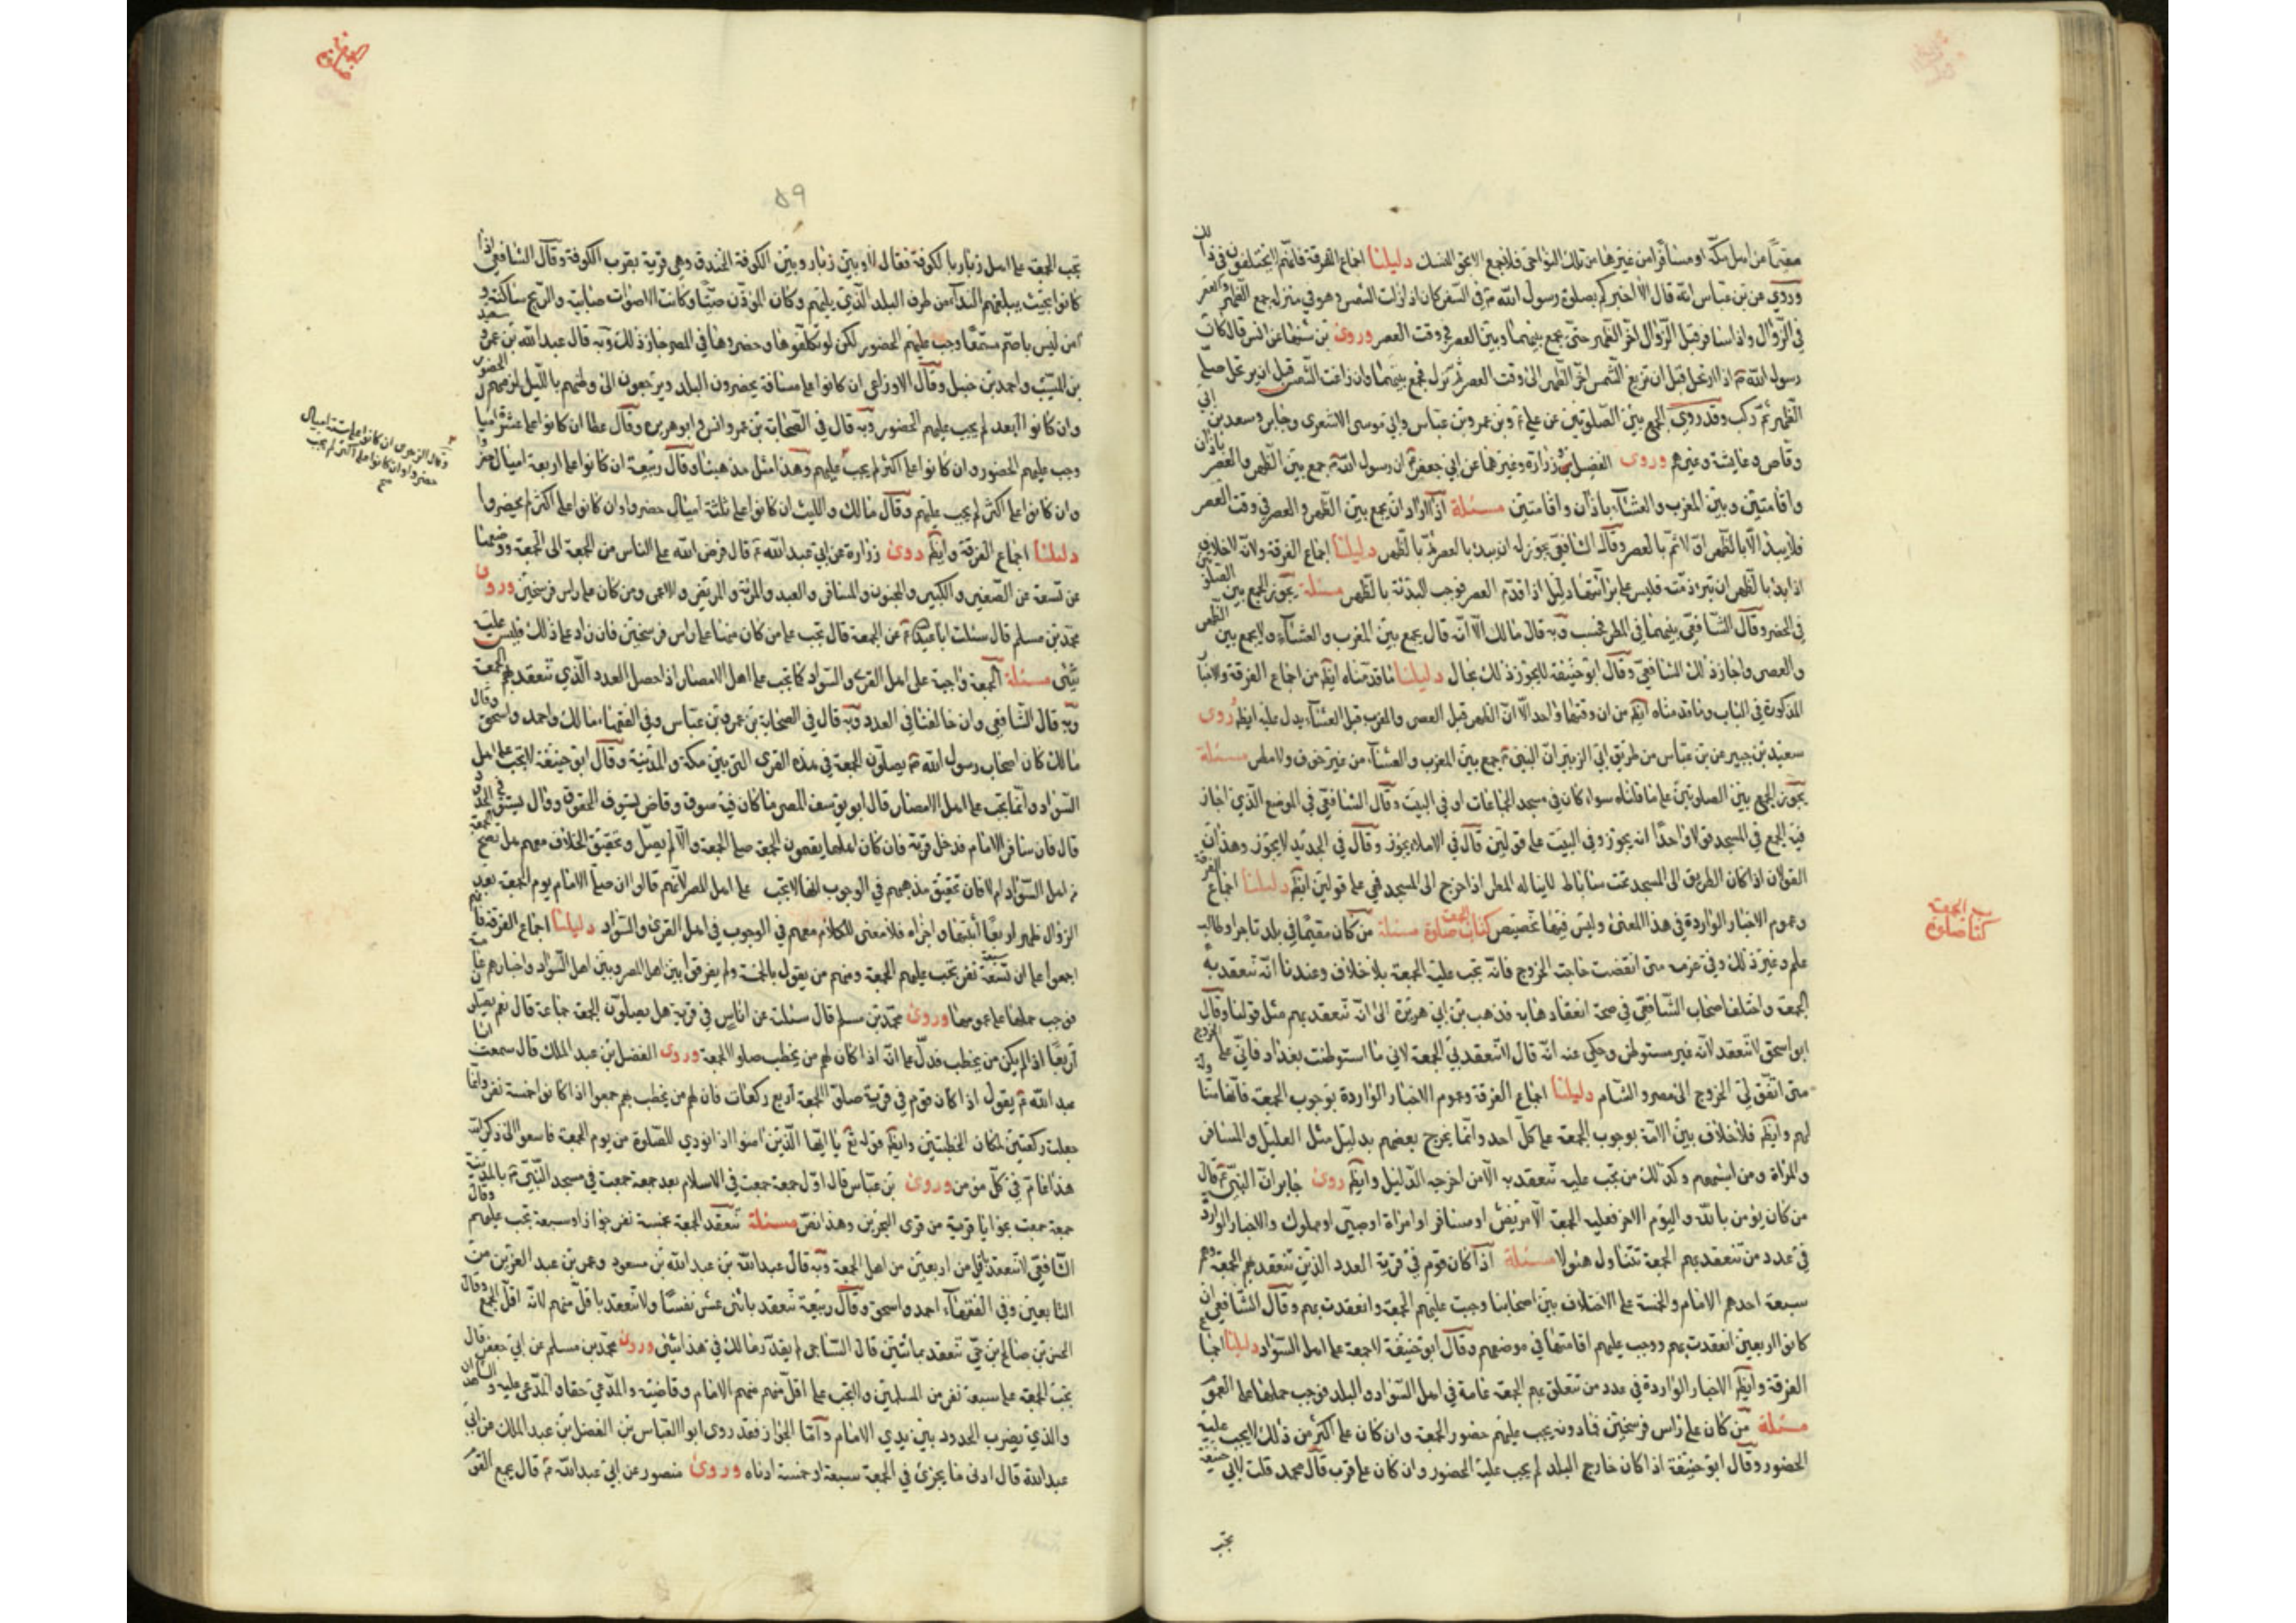 مقيما من اهل مكة او مسافرا من غيرها من تلك النواحي فلا يجمع الا بحق النسك دليلنا اجماع الفرقة فانهم لا يختلفون في ذلك
وروي عن بن عباس انه قال الا اخبركم بصلوة رسول الله في السفر كان اذا زالت الشمس وهو في منزله جمع الظهر والعصر
في الزوال واذا سافر قبل الزوال اخر الظهر حتى يجمع بينهما وبين العصر في وقت العصر وروى بن شهاب عن انس قال كان
رسول الله اذا ارتحل قبل ان تزيغ الشمس اخر الظهر الى وقت العصر ثم نزل فجمع بينهما وان زاغت الشمس قبل ان يرتحل صلى
الظهر ثم ركب وقد روي الجمع بين الصلوتين عن علي وبن عمر وبن عباس وابي موسى الاشعري وجابر وسعد بن ابي
وقاص وعايشة وغيرهم وروى الفضيل وزرارة وغيرهما عن ابي جعفر ان رسول الله جمع بين الظهر والعصر باذان
واقامتين وبين المغرب والعشاء باذان واقامتين مسئلة اذا اراد ان يجمع بين الظهر والعصر في وقت العصر
فلا يبدأ الا بالظهر اولا ثم بالعصر وقال الشافعي يجوز له ان يبدء بالعصر ثم بالظهر دليلنا اجماع الفرقة ولانه لا خلاف
اذا بدء بالظهر ان تبرء ذمته فليس على برائتها دليل اذا قدم العصر فوجب البدئة بالظهر مسئلة يجوز الجمع بين الصلوتين
في الحضر وقال الشافعي بينهما في المطر فحسب وبه قال مالك الا انه قال يجمع بين المغرب والعشاء ولا يجمع بين الظهر
والعصر واجاز ذلك الشافعي وقال ابو حنيفة لا يجوز ذلك بحال دليلنا ما قدمناه ايضا من اجماع الفرقة والاخبار
المذكورة في الباب وما قدمناه ايضا من ان وقتهما واحد الا ان الظهر قبل العصر والمغرب قبل العشاء يدل عليه ايضا روى
سعيد بن جبير عن بن عباس من طريق ابي الزبير ان النبي جمع بين المغرب والعشاء من غير خوف ولا مطر مسئلة
يجوز الجمع بين الصلوتين على ما قلناه سواء كان في مسجد الجماعات او في البيت وقال الشافعي في الموضع الذي اجاز
فيه الجمع في المسجد قولا واحدا انه يجوز وفي البيت على قولين قال في الاملاء يجوز وقال في الجديد لا يجوز وهذان
القولان اذا كان الطريق الى المسجد تحت ساباط لا يناله المطر اذا خرج الى المسجد فهي على قولين ايضا دليلنا اجماع الفرقة
وعموم الاخبار الواردة في هذا المعنى وليس فيها تخصيص كتاب صلوة الجمعة مسئلة من كان مقيما في بلد تاجر او طالب
علم وغير ذلك وفي عزمه متى انقضت حاجته الخروج فانه تجب عليه الجمعة بلا خلاف وعندنا انه تنعقد به
الجمعة واختلف اصحاب الشافعي في صحة انعقادها به فذهب بن ابي هريرة الى انه تنعقد بهم مثل قولنا وقال
ابو اسحق لا تنعقد لانه غير مستوطن وحكي عنه انه قال لا تنعقد بي الجمعة لاني ما استوطنت بغداد فاني على الخروج
متى اتفق لي الخروج الى مصر والشام دليلنا اجماع الفرقة وعموم الاخبار الواردة بوجوب الجمعة فانها متناولة
لهم وايضا فلا خلاف بين الامة بوجوب الجمعة على كل احد وانما يخرج بعضهم بدليل مثل العليل والمسافر
والمراة ومن اشبههم وكذلك من تجب عليه تنعقد به الا من اخرجه الدليل وايضا روى جابر ان النبي قال
من كان يؤمن بالله واليوم الاخر فعليه الجمعة الا مريض او مسافر او امراة او صبي او مملوك والاخبار الواردة
في عدد من تنعقد بهم الجمعة تتناول هؤلا مسئلة اذا كان قوم في قرية العدد الذين تنعقد بهم الجمعة وهم
سبعة احدهم الامام والخمسة على الاختلاف بين اصحابنا وجبت عليهم الجمعة وانعقدت بهم وقال الشافعي ان
كانوا اربعين انعقدت بهم ووجب عليهم اقامتها في موضعهم وقال ابو حنيفة لا جمعة على اهل السواد دليلنا اجماع
الفرقة وايضا الاخبار الواردة في عدد من تتعلق بهم الجمعة عامة في اهل السواد والبلد فوجب حملها على العموم
مسئلة من كان على راس فرسخين فما دونه يجب عليهم حضور الجمعة وان كان على اكثر من ذلك لا يجب عليه
الحضور وقال ابو حنيفة اذا كان خارج البلد لم يجب عليه الحضور وان كان على قرب قال محمد قلت لابي حنيفة
تجب
كتاب صلوة الجمعة
٥٩
تجب الجمعة على اهل زبارا بالكوفة فقال لا وبين زبارا وبين الكوفة الخندق وهي قرية بقرب الكوفة وقال الشافعي اذا
كانوا بحيث يبلغهم النداء من طرف البلد الذي يليهم وكان المؤذن صيتا وكانت الاصوات هادية والريح ساكنة و
من ليس باصم مستمعا وجب عليهم الحضور لكن لو تكلفوها وحضروها في المصر جاز ذلك وبه قال عبد الله بن عمرو سعيد
بن المسيب واحمد بن حنبل وقال الاوزاعي ان كانوا على مسافة يحضرون البلد ويرجعون الى وطنهم بالليل لزمهم الحضور
وان كانوا ابعد لم يجب عليهم الحضور وبه قال في الصحابة بن عمر وانس وابو هريرة وقال عطا ان كانوا على عشرة اميال
وجب عليهم الحضور وان كانوا على اكثر لم يجب عليهم وهذا مثل مذهبنا وقال ربيعة ان كانوا على اربعة اميال حضروا
وان كانوا على اكثر لم يجب عليهم وقال مالك والليث ان كانوا على ثلثة اميال حضروا وان كانوا على اكثر لم يحضروا
دليلنا اجماع الفرقة وايضا روى زرارة عن ابي عبد الله قال فرض الله على الناس من الجمعة الى الجمعة ووضعها
عن تسعة عن الصغير والكبير والمجنون والمسافر والعبد والمرئة والمريض والاعمى ومن كان على راس فرسخين وروى
محمد بن مسلم قال سئلت ابا عبد الله عن الجمعة قال تجب على من كان منها على راس فرسخين فان زاد على ذلك فليس عليه
شيئ مسئلة الجمعة واجبة على اهل القرى والسواد كما تجب على اهل الامصار اذا حصل العدد الذي تنعقد بهم الجمعة
وبه قال الشافعي وان خالفنا في العدد وبه قال في الصحابة بن عمر وبن عباس وفي الفقهاء مالك واحمد واسحق وقال
مالك كان اصحاب رسول الله يصلون الجمعة في هذه القرى التي بين مكة والمدينة وقال ابو حنيفة لا تجب على اهل
السواد وانما تجب على اهل الامصار قال ابو يوسف المصر ما كان فيه سوق وقاض يستوفي الحقوق ووال يستوفي الحدود
قال فان سافر الامام فدخل قرية فان كان اهلها يقيمون الجمعة صلى الجمعة والا لم يصل وتحقيق الخلاف معهم هل تصح الجمعة
من اهل السواد ام لا فان تحقيق مذهبهم في الوجوب انها لا تجب على اهل المصر لانهم قالوا ان صلى الامام يوم الجمعة بعد
الزوال ظهرا اربعا اثبتها واجزاه فلا معنى للكلام معهم في الوجوب في اهل القرى والسواد دليلنا اجماع الفرقة فانهم
اجمعوا على ان سبعة نفر تجب عليهم الجمعة ومنهم من يقول بالخمسة ولم يفرقوا بين اهل المصر وبين اهل السواد واخبارهم عامة
فوجب حملها على عمومها وروى محمد بن مسلم قال سئلته عن اناس في قرية هل يصلون الجمعة جماعة قال نعم يصلون
اربعا اذا لم يكن من يخطب فدل على انه اذا كان لهم من يخطب صلوا الجمعة وروى الفضل بن عبد الملك قال سمعت ابا
عبد الله يقول اذا كان قوم في قرية صلوا الجمعة اربع ركعات فان لهم من يخطب بهم جمعوا اذا كانوا خمسة نفر وانما
جعلت ركعتين لمكان الخطبتين وايضا قوله تع يا ايها الذين امنوا اذا نودي للصلوة من يوم الجمعة فاسعوا الى ذكر الله
هذا عام في كل مؤمن وروى بن عباس قال اول جمعة جمعت في الاسلام بعد جمعة جمعت في مسجد النبي بالمدينة
جمعة جمعت بجواثا قرية من قرى البحرين وهذا نص مسئلة تنعقد الجمعة بخمسة نفر جوازا وبسبعة تجب عليهم وقال
الشافعي لا تنعقد باقل من اربعين من اهل الجمعة وبه قال عبد الله بن عبد الله بن مسعود وعمر بن عبد العزيز من
التابعين وفي الفقهاء احمد واسحق وقال ربيعة تنعقد باثنى عشر نفسا ولا تنعقد باقل منهم لانه اقل الجمع وقال
الحسن بن صالح بن حي تنعقد باثنين قال الساجي لم يقدر مالك في هذا شيئ وروى محمد بن مسلم عن ابي جعفر قال
تجب الجمعة على سبعة نفر من المسلمين ولا تجب على اقل منهم منهم الامام وقاضيه والمدعي حقا والمدعى عليه والشاهدان
والذي يضرب الحدود بين يدي الامام واما الجواز فقد روى ابو العباس بن الفضل بن عبد الملك عن ابي
عبد الله قال ادنى ما يجزئ في الجمعة سبعة او خمسة ادناه وروى منصور عن ابي عبد الله قال يجمع القوم
وقال الزهري ان كانوا على ستة اميال
حضروا وان كانوا على اكثر لم يجب
صح